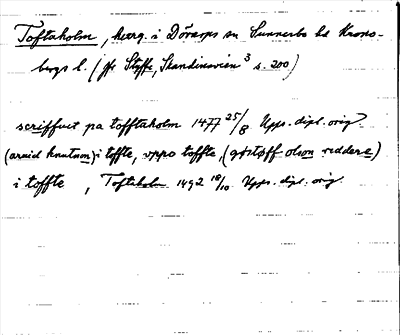 Toftaholm, herrg. i Dörarps sn Sunnerbo hd Krono-
bergs l. (jfr Styffe, Skandinavien³ s. 200)
scriffuet pa tofftaholm 1477 25/8 Upps. dipl. orig
(aruid knutson) i toffte, vppo toffte, (gøstøff olson reddere)
i toffte, Toftaholm 1492 18/10 Upps. dipl. orig.